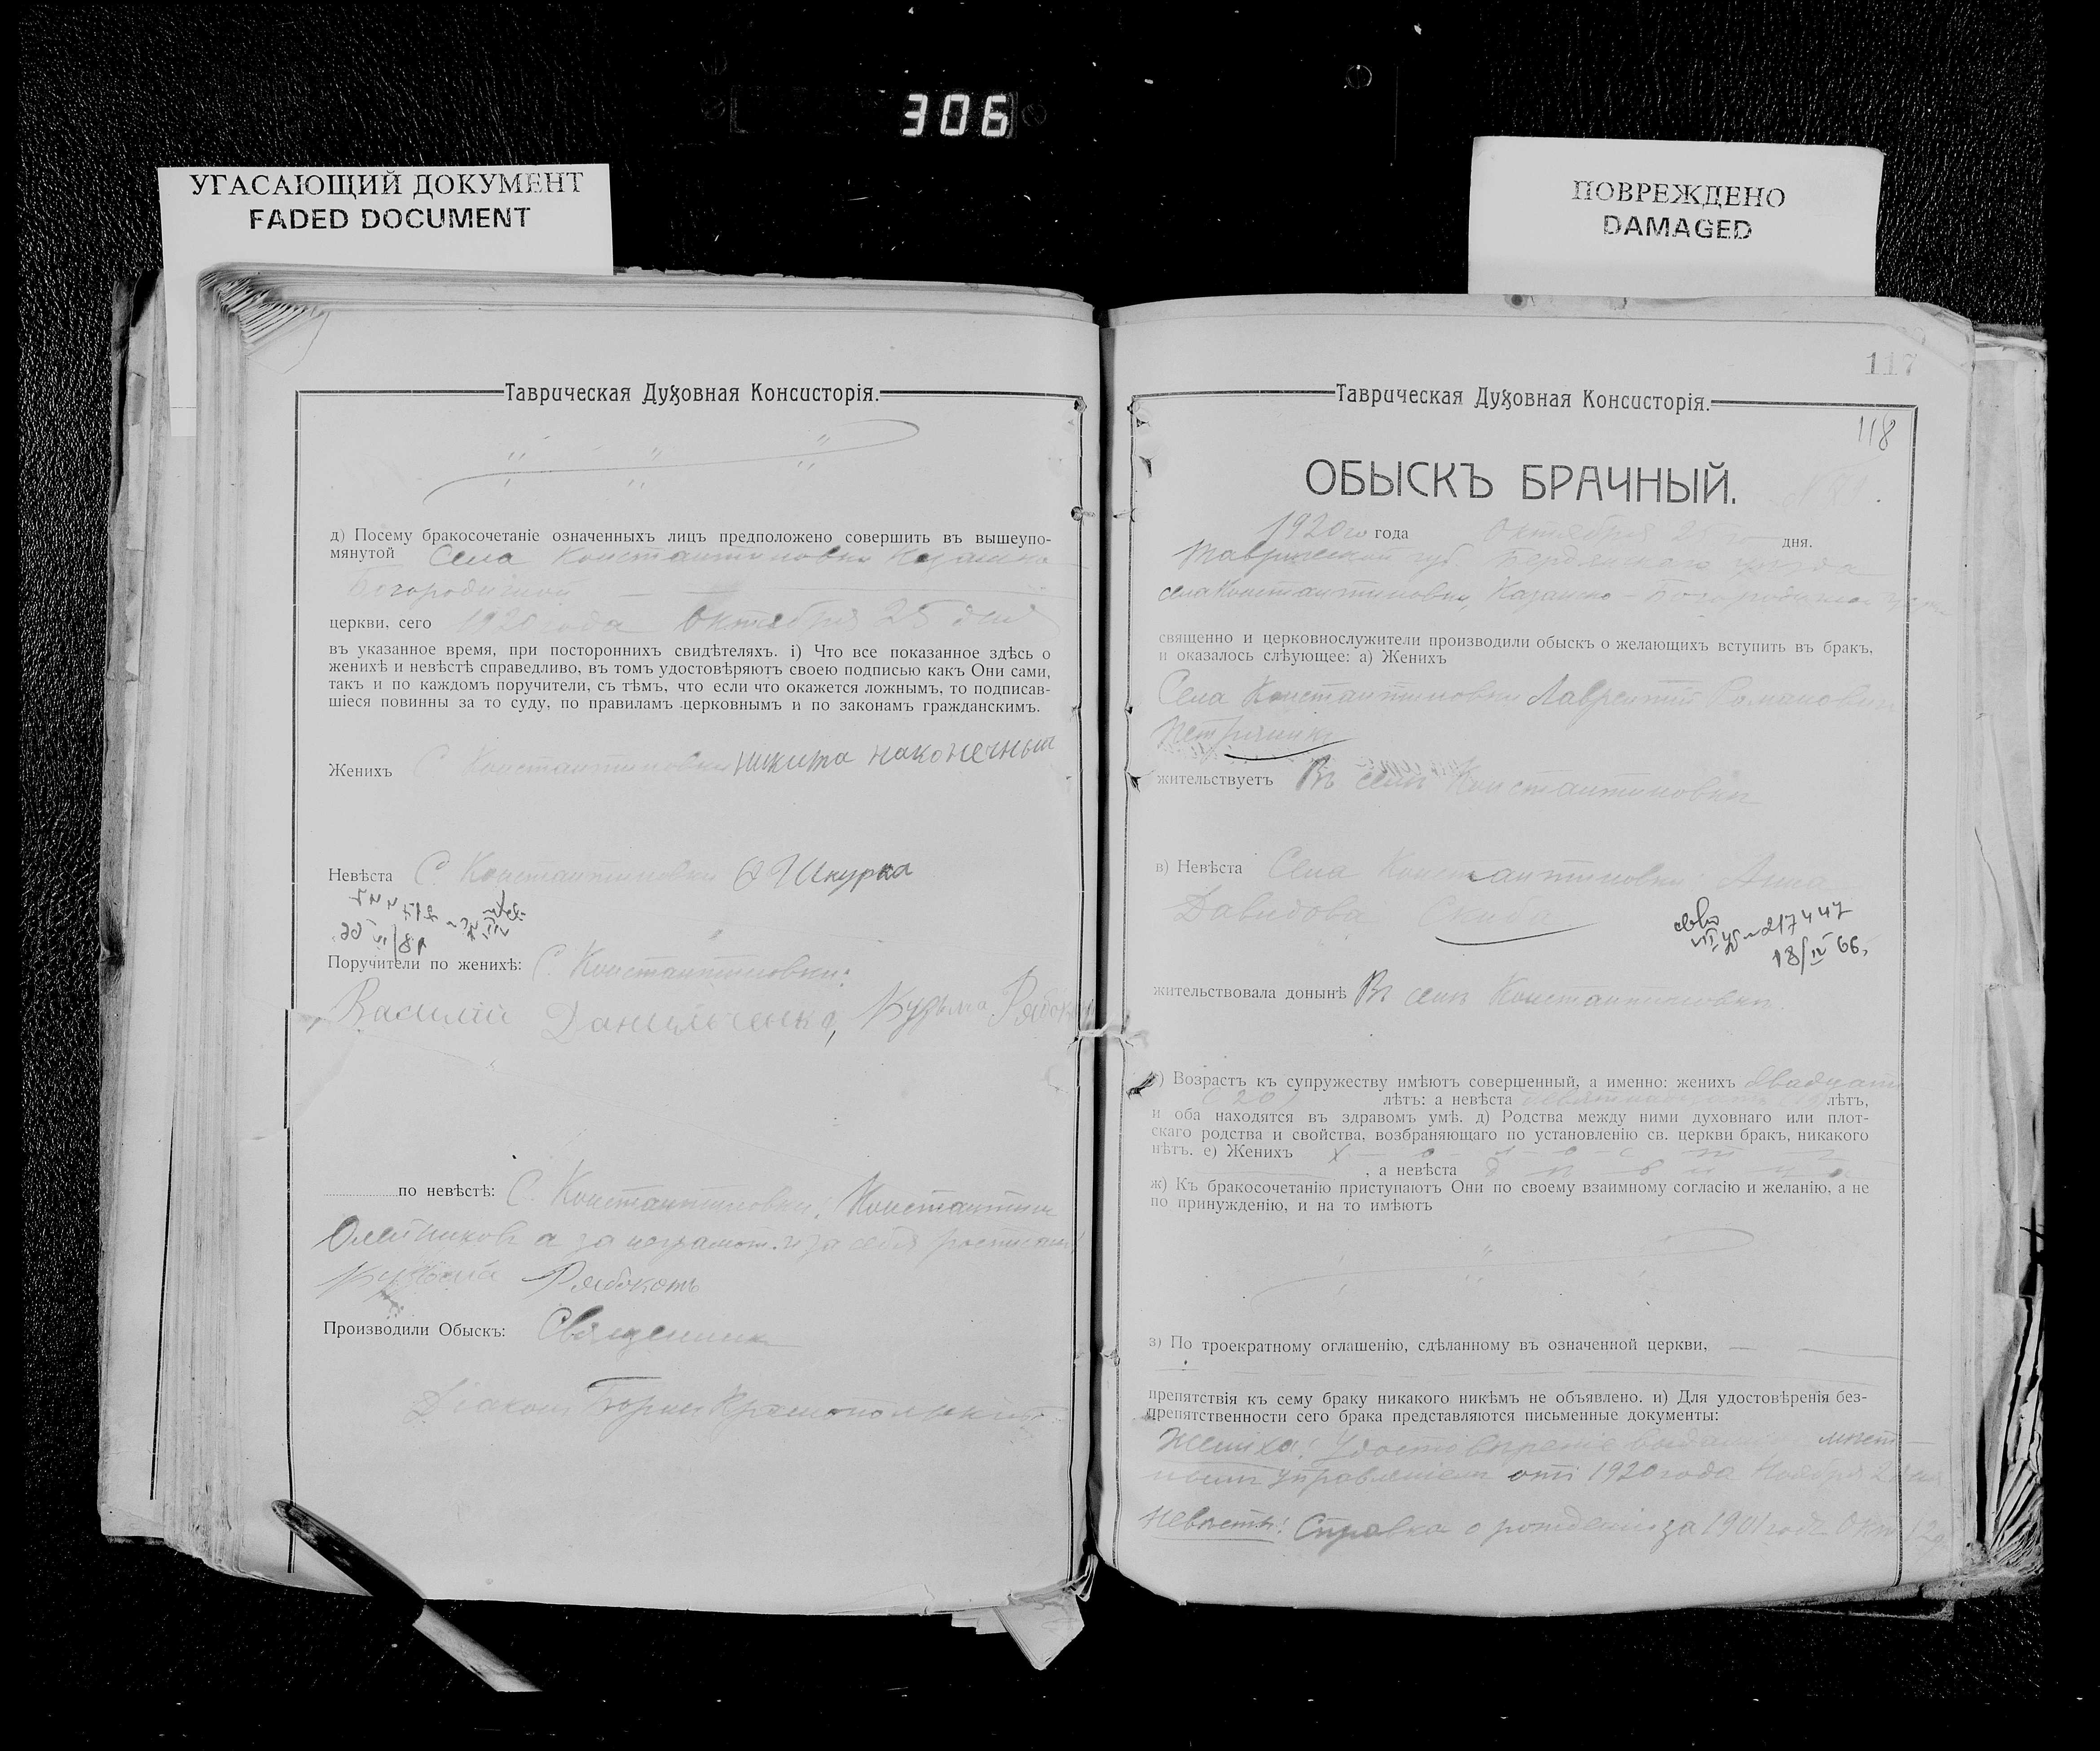 306
УГАСАЮЩИЙ ДОКУМЕНТ
FADED DOCUMENT
ПОВРЕЖДЕНО
DAMAGED
Таврическая Духовная Консисторія.
д) Посему бракосочетаніе означенныхъ лицъ предположено совершить въ вышеупо-
мянутой Села Константиновки Казанско
Богородичной
церкви, сего 1920 года Октября 25 дня
въ указанное время, при постороннихъ свидѣтеляхъ. і) Что все показанное здѣсь о
женихѣ и невѣстѣ справедливо, въ томъ удостовѣряютъ своею подписью какъ Они сами,
такъ и по каждомъ поручители, съ тѣмъ, что если что окажется ложнымъ, то подписав-
шіеся повинны за то суду, по правиламъ церковнымъ и по законамъ гражданскимъ.
Женихъ С. Константиновки никита наконечный
Невѣста С. Константиновки Шкурка
Поручители по женихѣ: С. Константиновки:
Василій Данильченко, Кузьма Рябоконь
по невѣстѣ: С. Константиновки: Константин
Олейников а за неграмот. и за себя
Кузьма Рябоконь
Производили Обыскъ: Священник
Діакон Борис
117
Таврическая Духовная Консисторія.
118
ОБЫСКЪ БРАЧНЫЙ.
1920 го года Октября 25 дня.
Таврической губ. Бердянского уезда
села Константиновки, Казанско-Богородичной
священно и церковнослужители производили обыскъ о желающихъ вступить въ бракъ,
и оказалось слѣующее: а) Женихъ
Села Константиновки Лаврентій Романович
жительствуетъ Въ селе Константиновки
в) Невѣста Села Константиновки Анна
Давидова Скиба
217447
18/IV 66.
жительствовала донынѣ Въ селе Константиновки
г) Возрастъ къ супружеству имѣютъ совершенный, а именно: женихъ двадцати
(20) лѣтъ: а невѣста лѣтъ,
и оба находятся въ здравомъ умѣ. д) Родства между ними духовнаго или плот-
скаго родства и свойства, возбраняющаго по установленію св. церкви бракъ, никакого
нѣтъ. е) Женихъ х о л о с т
, а невѣста
ж) Къ бракосочетанію приступаютъ Они по своему взаимному согласію и желанію, а не
по принужденію, и на то имѣютъ
з) По троекратному оглашенію, сдѣланному въ означенной церкви,
препятствія къ сему браку никакого никѣмъ не объявлено. и) Для удостовѣренія без-
препятственности сего брака представляются письменные документы:
Жениха: Удостовереніе мест-
ным управленіем от 1920 года Ноября 2
Невесты: Справка о рожденіи за 1901 год